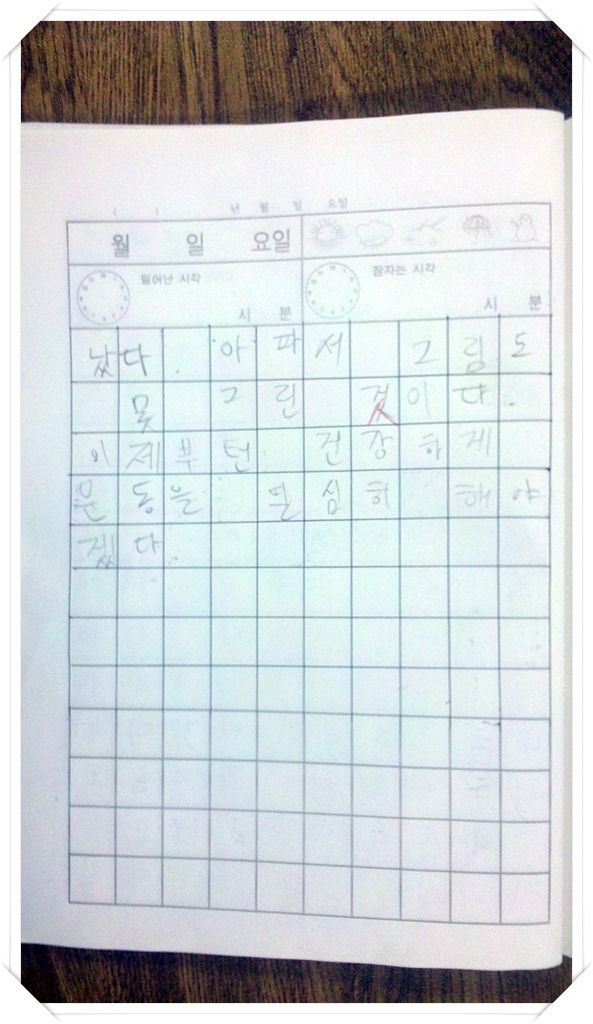 ( ) 년 월 일 요일
월 일 요일
일어난 시각 잠자는 시각
시 분 시 분
났다. 아파서 그림도
못 그린 것이다.
이제부턴 건강하게
운동을 열심히 해야
겠다.